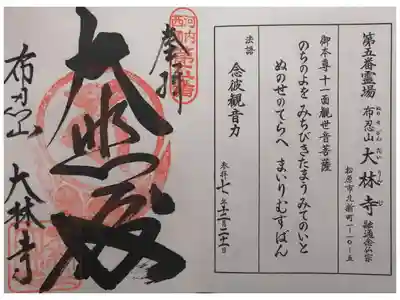 第五番霊場
布忍山 大林寺 融通念仏宗
ぬのせざん だいりんじ
松原市北新町一ー一〇ー五
御本尊十一面觀世音菩薩
のちのよを みちびきたまう みてのいと
ぬのせのてらへ まいりむすばん
法語
念彼觀音力
参拝 七年十二月二十一日
奉拝
河内西國
大悲殿
布忍山
大林寺